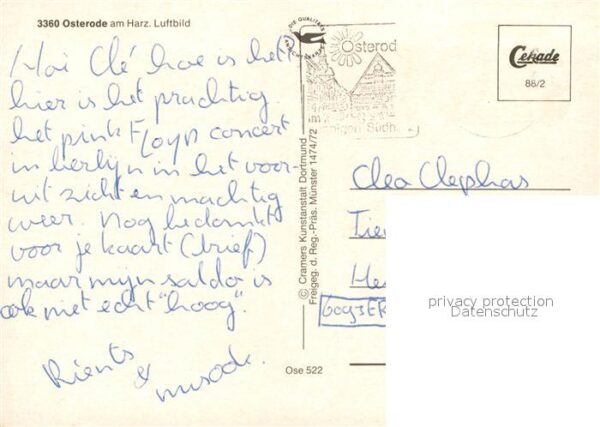 3360 Osterode am Harz. Luftbild
Hoi Clé hoe is het
hier is het prachtig
het pink Floyd concert
in berlijn in het voor-
uit zicht en machtig
weer. Nog bedankt
voor je kaart (brief)
maar mijn saldo is
ook niet echt "hoog".
Rients
&
DIE QUALITÄTS
ANSICHTSKARTE
Osterod
© Cramers Kunstanstalt Dortmund
Freigeg. d. Reg.-Präs. Münster 1474/72
Ose 522
Cekade
88/2
Clea Clephas
privacy protection
Datenschutz